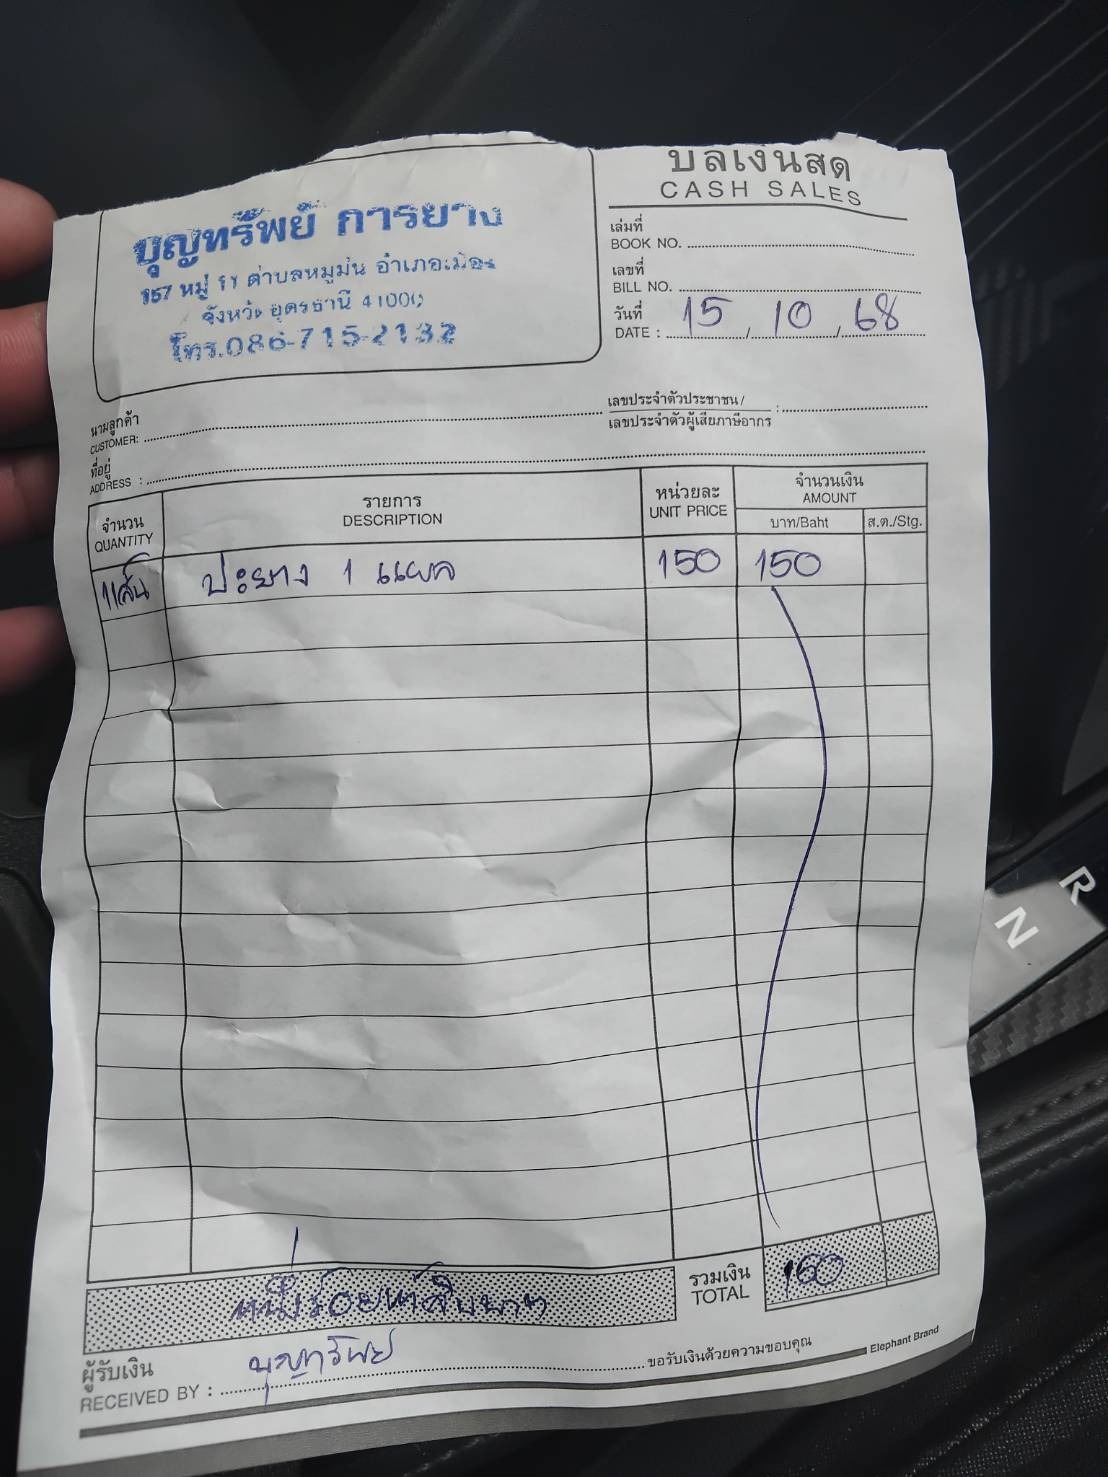 บุญทรัพย์ การยาง
157 หมู่ 11 ตำบลหมูม่น อำเภอเมือง
จังหวัด อุดรธานี 41000
โทร.086-715-2132
บิลเงินสด
CASH SALES
เล่มที่
BOOK NO.
เลขที่
BILL NO.
วันที่
DATE : 15 / 10 / 68
นามลูกค้า
CUSTOMER:
เลขประจำตัวประชาชน/
เลขประจำตัวผู้เสียภาษีอากร :
ที่อยู่
ADDRESS :
จำนวน
QUANTITY
รายการ
DESCRIPTION
หน่วยละ
UNIT PRICE
จำนวนเงิน
AMOUNT
บาท/Baht ส.ต./Stg.
1เส้น ปะยาง 1 แผล 150 150
หนึ่งร้อยห้าสิบบาท
รวมเงิน
TOTAL
150
ผู้รับเงิน
RECEIVED BY : บุญทรัพย์
ขอรับเงินด้วยความขอบคุณ
Elephant Brand
R
N